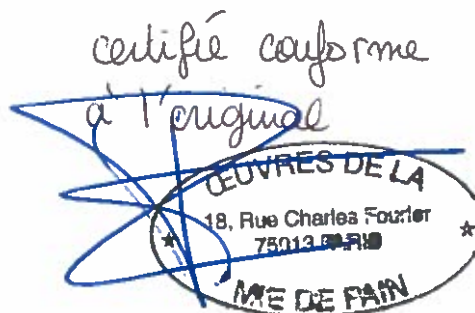 certifié conforme
à l'original
ŒUVRES DE LA
18, Rue Charles Fourier
75013 PARIS
MIE DE PAIN